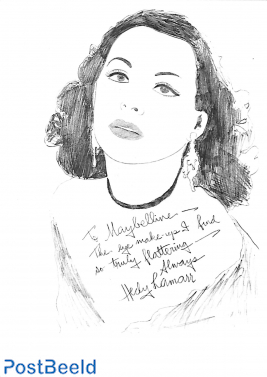 To Maybelline
The eye make up I find
so truly flattering
Always
Hedy Lamarr
PostBeeld